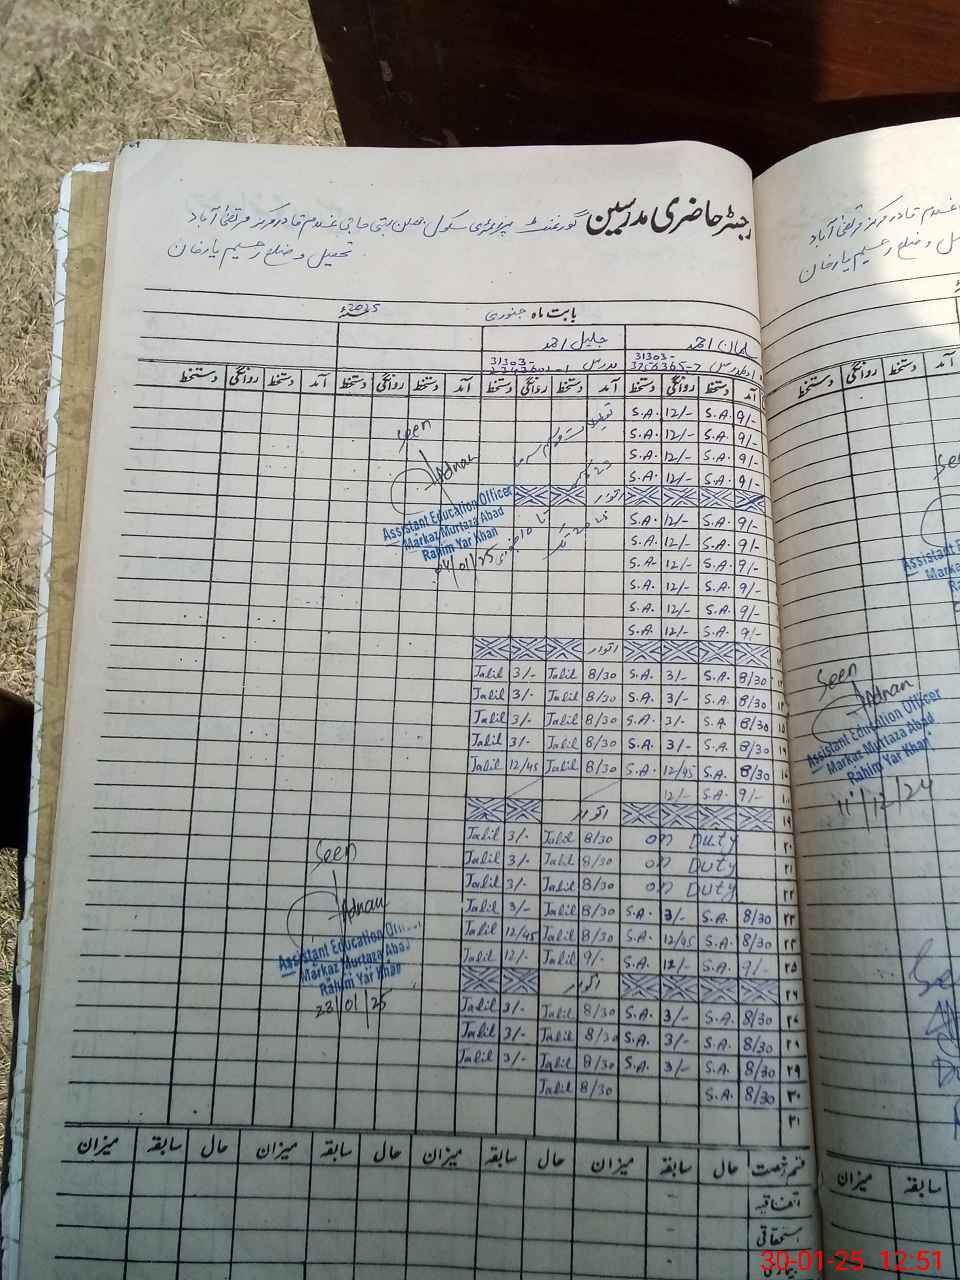 رجسٹر حاضری مدرسین گورنمنٹ پرائمری سکول بستی حاجی غلام قادر مرکز مرتضیٰ آباد
تحصیل و ضلع رحیم یار خان
بابت ماہ جنوری 2025ء
سلمان احمد جلیل احمد
31303- 31303-
مدرس 3256365-7 مدرس
آمد دستخط روانگی دستخط آمد دستخط روانگی دستخط آمد دستخط روانگی دستخط آمد دستخط روانگی دستخط
9/- S.A. 12/- S.A. تعطیلات موسم سرما
9/- S.A. 12/- S.A.
9/- S.A. 12/- S.A.
9/- S.A. 12/- S.A.
اتوار
9/- S.A. 12/- S.A.
9/- S.A. 12/- S.A.
9/- S.A. 12/- S.A.
9/- S.A. 12/- S.A.
9/- S.A. 12/- S.A.
9/- S.A. 12/- S.A.
Seen
Adnan
Assistant Education Officer
Markaz Murtaza Abad
Rahim Yar Khan
اتوار
8/30 S.A. 3/- S.A. 8/30 Jalil 3/- Jalil
8/30 S.A. 3/- S.A. 8/30 Jalil 3/- Jalil
8/30 S.A. 3/- S.A. 8/30 Jalil 3/- Jalil
8/30 S.A. 3/- S.A. 8/30 Jalil 3/- Jalil
8/30 S.A. 12/45 S.A. 8/30 Jalil 12/45 Jalil
9/- S.A. 12/-
۱۹ اتوار
۲۰ on Duty 8/30 Jalil 3/- Jalil
۲۱ on Duty 8/30 Jalil 3/- Jalil
۲۲ on Duty 8/30 Jalil 3/- Jalil
۲۳ 8/30 S.A. 3/- S.A. 8/30 Jalil 3/- Jalil
8/30 S.A. 12/45 S.A. 8/30 Jalil 12/45 Jalil
۲۵ 9/- S.A. 12/- S.A. 9/- Jalil 12/- Jalil
۲۶ اتوار
۲۷ 8/30 S.A. 3/- S.A. 8/30 Jalil 3/- Jalil
8/30 S.A. 3/- S.A. 8/30 Jalil 3/- Jalil
۲۹ 8/30 S.A. 3/- S.A. 8/30 Jalil 3/- Jalil
۳۰ 8/30 S.A. 8/30 Jalil
۳۱
Seen
Adnan
Assistant Education
Markaz Murtaza Abad
Rahim Yar Khan
28/01/25
قسم رخصت حال سابقہ میزان حال سابقہ میزان حال سابقہ میزان حال سابقہ میزان
اتفاقیہ
استحقاقی
بیماری
غلام قادر مرکز مرتضیٰ آباد
ضلع رحیم یار خان
آمد دستخط روانگی دستخط
Seen
Adnan
Assistant Education Officer
Markaz Murtaza Abad
Rahim Yar Khan
11/12/24
سابقہ میزان
30-01-25 12:51